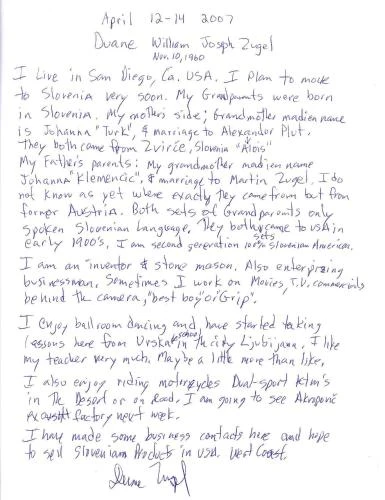 April 12-14 2007
Duane William Joseph Zugel
Nov. 10, 1960
I Live in San Diego, Ca. USA. I Plan to move
to Slovenia very soon. My Grandparents were born
in Slovenia. My mother's side; Grandmother madien name
is Johanna "Turk", & marriage to Alexander Plut.
They both came from Zvirče, Slovenia "Alois"
My Father's parents: My grandmother madien name
Johanna "Klemencic", & marriage to Martin Zugel. I do
not know as yet where exactly they came from but from
former Austria. Both sets of Grandparents only
spoken Slovenian Language. They both sets came to USA in
early 1900's, I am second generation 100% Slovenian American.
I am an inventor & stone mason. Also enterprizing
businessman. Sometimes I work on Movies, T.V. commercials
behind the camera, "best boy" or Grip".
I enjoy ballroom dancing and, have started taking
lessons here from Urska school in the city Ljubijana. I like
my teacher very much. Maybe a little more than like.
I also enjoy riding motorcycles Dual-sport Ktm's
in The Desert or on Road. I am going to see Akrapovic
exaust factory next week.
I have made some business contacts here and hope
to sell Slovenian Products in USA. West Coast.
Duane Zugel